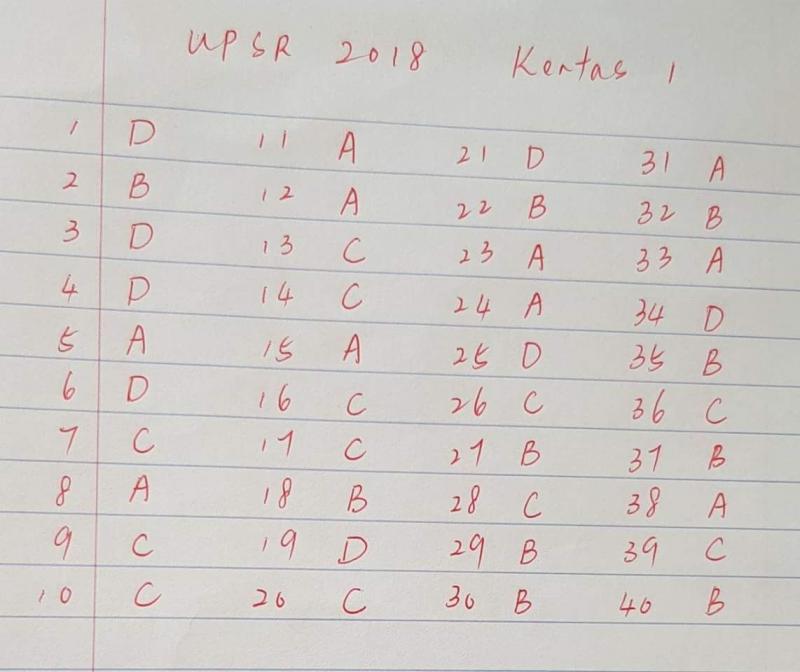 UPSR 2018 Kertas 1
1 D 11 A 21 D 31 A
2 B 12 A 22 B 32 B
3 D 13 C 23 A 33 A
4 D 14 C 24 A 34 D
5 A 15 A 25 D 35 B
6 D 16 C 26 C 36 C
7 C 17 C 27 B 37 B
8 A 18 B 28 C 38 A
9 C 19 D 29 B 39 C
10 C 20 C 30 B 40 B